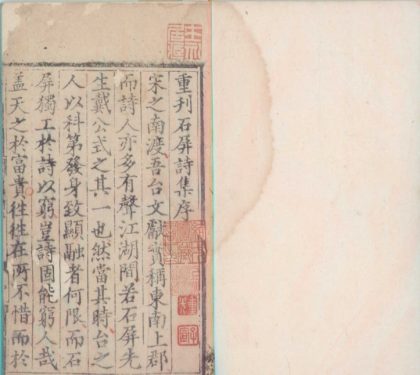 重刊石屏詩集序
宋之南渡吾台文獻實稱東南上郡
而詩人亦多有聲江湖間若石屏先
生戴公式之其一也然當其時台之
人以科第發身致顯融者何限而石
屏獨工於詩以窮豈詩固能窮人哉
盖天之於富貴往往在所不惜而於